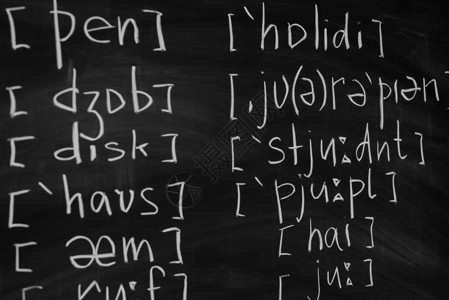 [pen]
[dʒɒb]
[disk]
[ˋhaʊs]
[æm]
[ˋhɒlidi]
[ˌjʊ(ə)rəˋpɪən]
[ˋstjuːdnt]
[ˋpjuːpl]
[hai]
[juː]